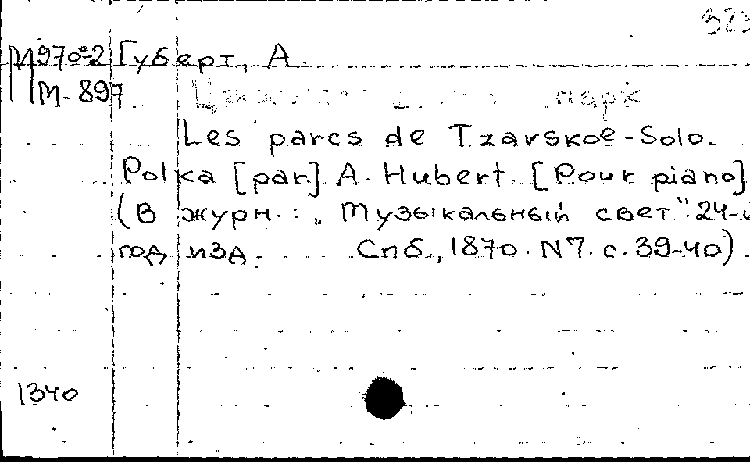 323
М970-2 Губерт, А
М-897 парк
Les parcs de Tzarskoe-Solo.
Polka [par] A. Hubert. [Pour piano]
(В журн.: „Музыкальный свет" 24-
год изд. Спб., 1870. N7. с. 39-40)
1340